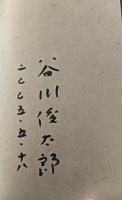 谷川俊太郎
二〇〇五・五・十八